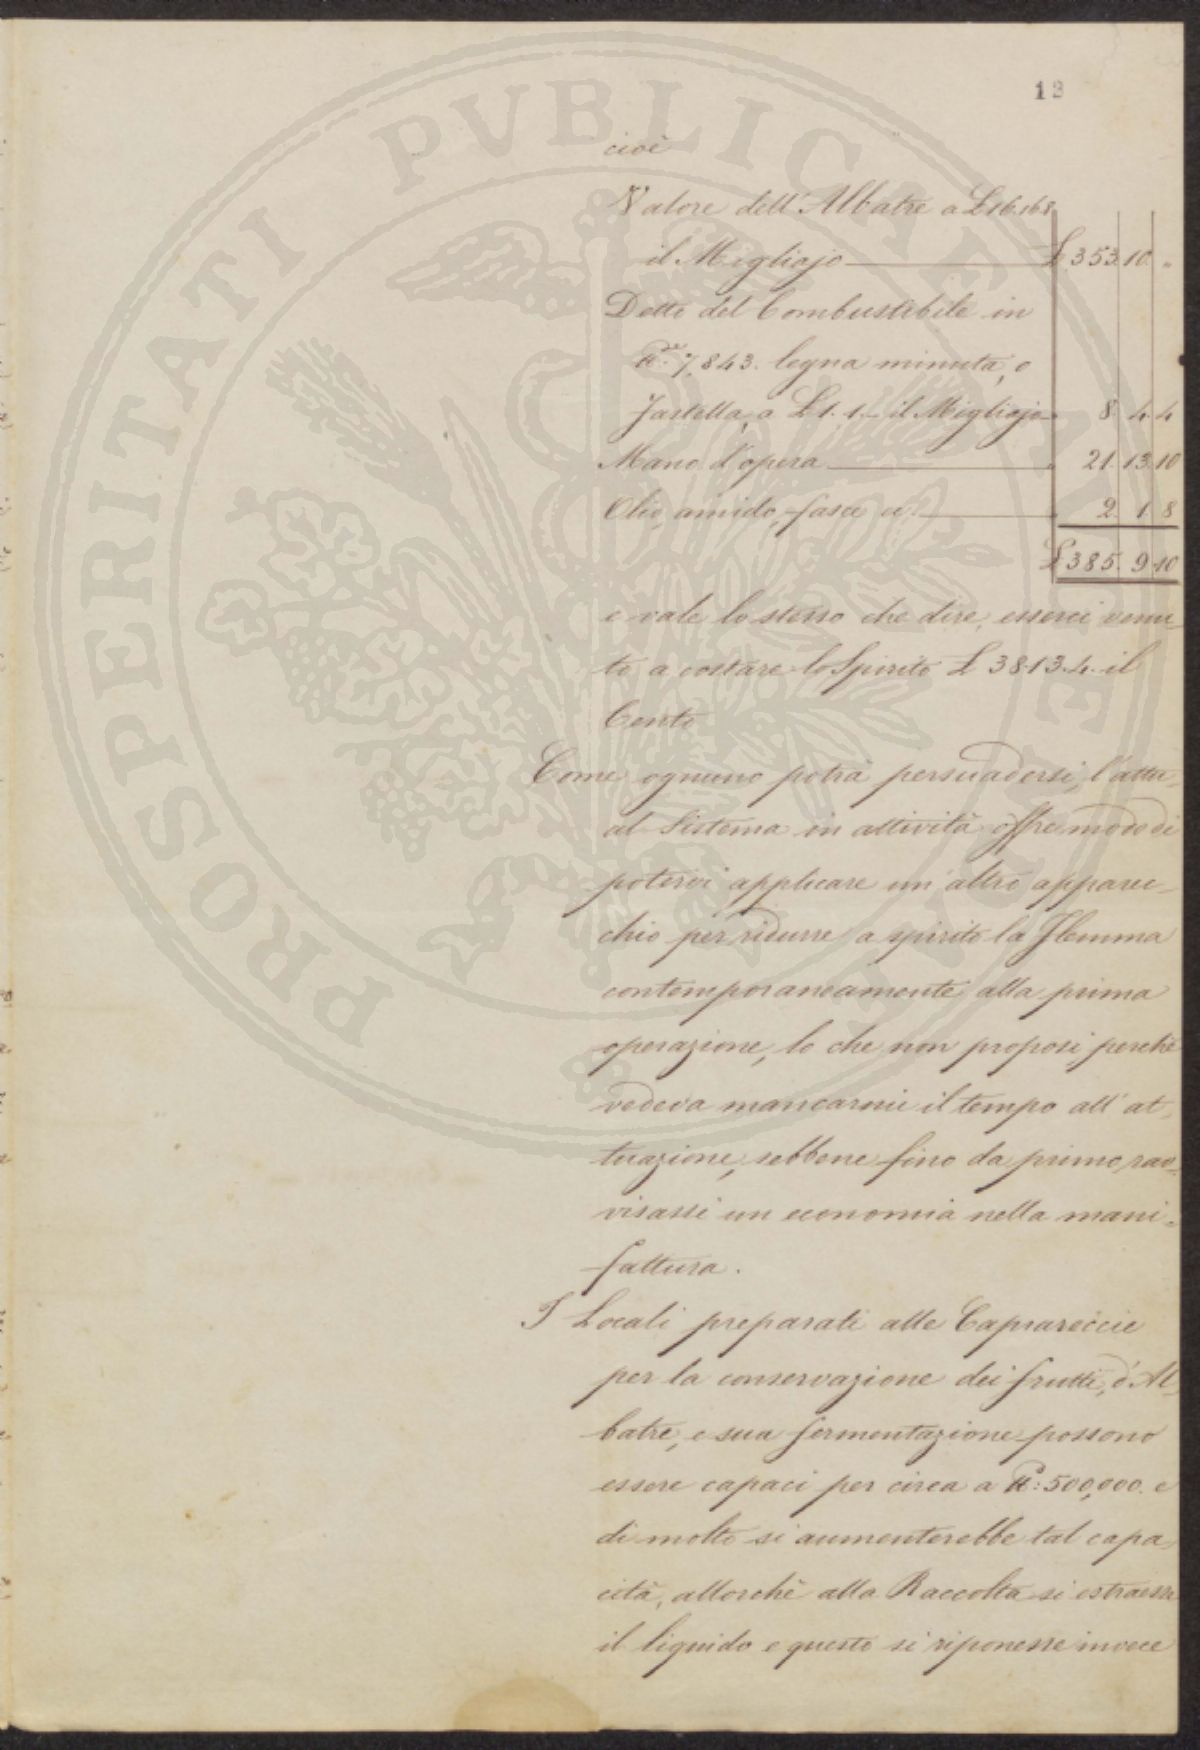 12
cioè
Valore dell'Albatre a £16.16.8
il Migliajo £ 353. 10. "
Detto del Combustibile in
7,843. legna minuta, o
Fastella, a £1. 1. – il Migliajo " 8. 4. 4
Mano d'opera " 21. 13. 10
Olio, amido, fasce &. " 2. 1. 8
£ 385. 9. 10
e vale lo stesso che dire, esserci venu-
to a costare lo Spirito £ 38.13.4. il
Cento
Come ognuno potrà persuadersi, l'attu-
al Sistema in attività offre modo di
potervi applicare un'altro apparec-
chio per ridurre a spirito la Flemma
contemporaneamente alla prima
operazione, lo che non proposi perchè
vedeva mancarmi il tempo all'at-
tuazione, sebbene fino da primo rav-
visassi un economia nella mani-
fattura.
I Locali preparati alle Caprareccie
per la conservazione dei frutti, d'Al-
batre, e sua fermentazione possono
essere capaci per circa a 500,000. e
di molto si aumenterebbe tal capa-
cità, allorchè alla Raccolta si estraesse
il liquido e questo si riponesse invece
PROSPERITATI PVBLICAE AVGENDAE